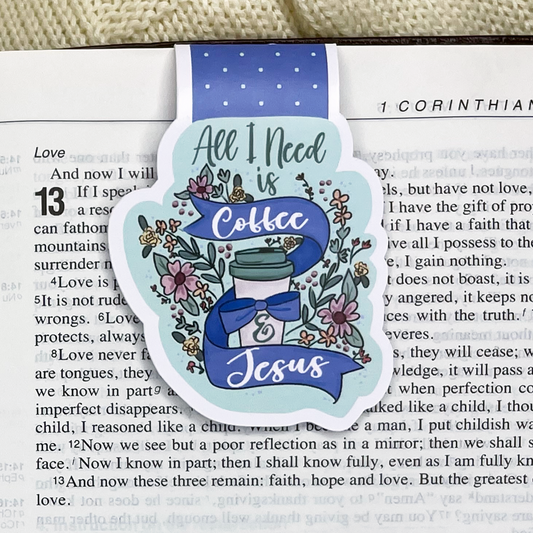 1 CORINTHIAN
All I Need
is
Coffee
&
Jesus
Love
And now I will ay.
13 If I speak els, but have not love,
a reso I have the gift of pro
can fathom if I have a faith that
mountains, ive all I possess to the
surrender m e, I gain nothing.
4Love is p does not boast, it is
5It is not rude y angered, it keeps no
wrongs. 6Love ces with the truth. 7I
protects, always everes.
8Love never fa s, they will cease; w
are tongues, they wledge, it will pass a
we know in part g a when perfection co
imperfect disappears. alked like a child, I thou
child, I reasoned like a child. When I became a man, I put childish wa
me. 12Now we see but a poor reflection as in a mirror; then we shall s
face. Now I know in part; then I shall know fully, even as I am fully kn
13And now these three remain: faith, hope and love. But the greatest o
love.